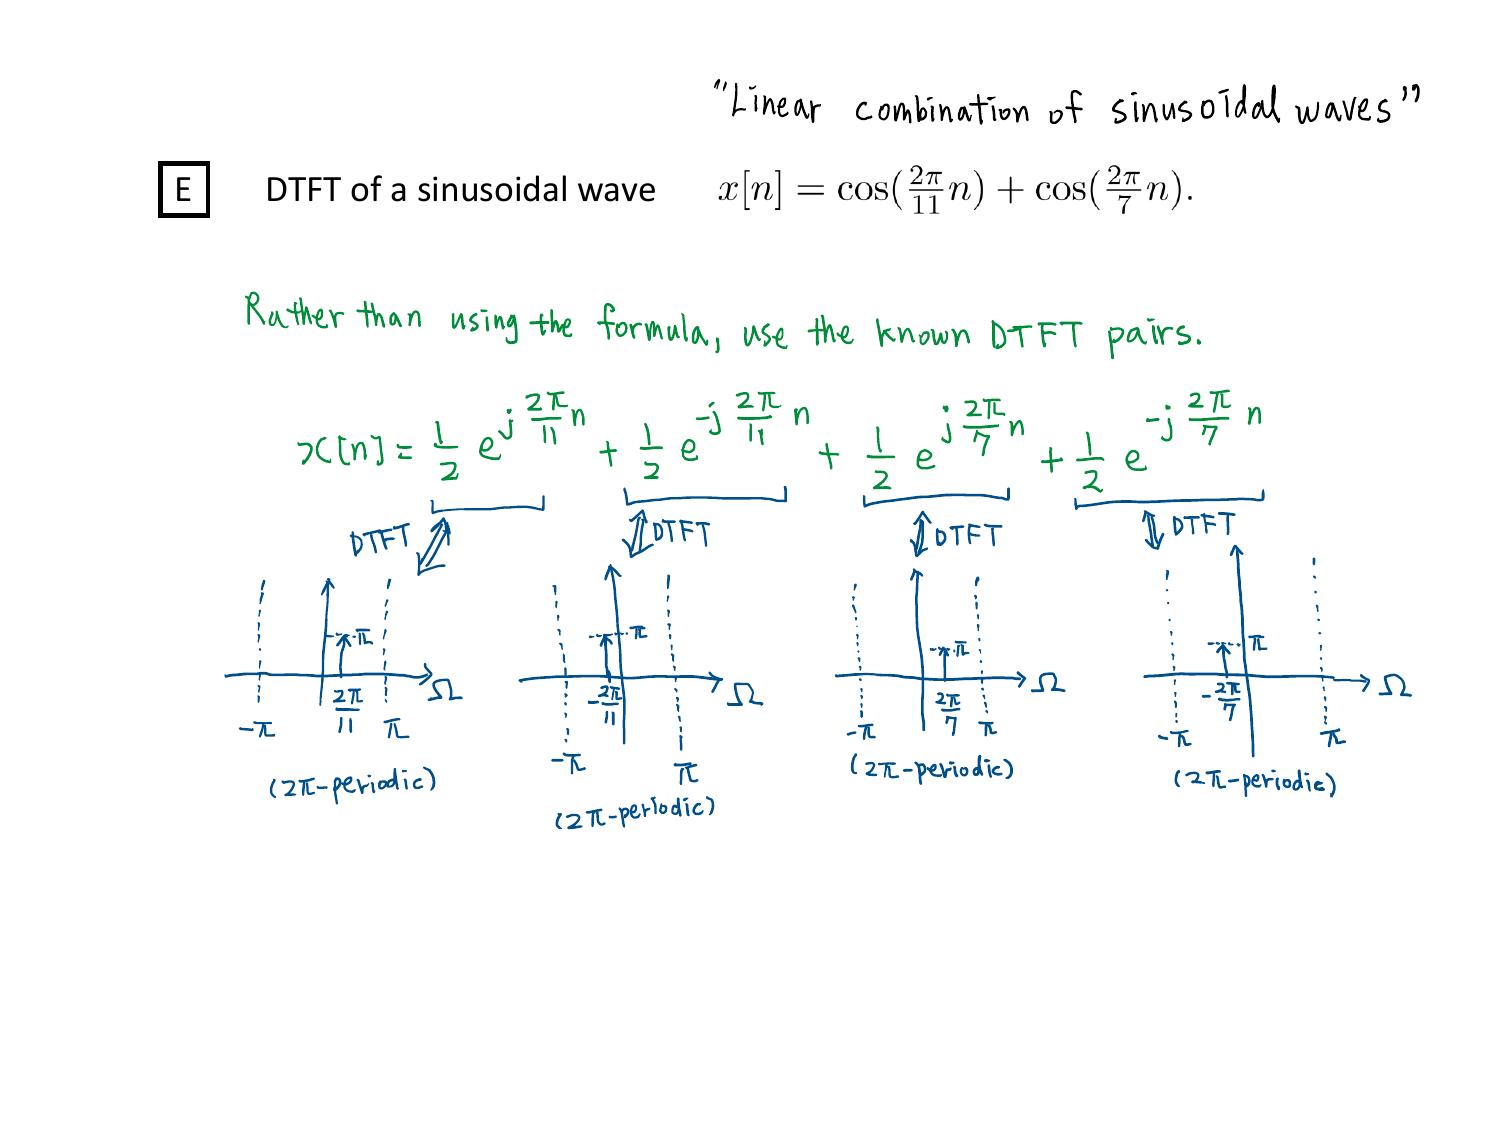 "Linear combination of sinusoidal waves"
E DTFT of a sinusoidal wave x[n] = cos(2π/11 n) + cos(2π/7 n).
Rather than using the formula, use the known DTFT pairs.
x[n] = 1/2 e^{j 2π/11 n} + 1/2 e^{-j 2π/11 n} + 1/2 e^{j 2π/7 n} + 1/2 e^{-j 2π/7 n}
DTFT DTFT DTFT DTFT
π π π π
Ω Ω Ω Ω
2π/11 -2π/11 2π/7 -2π/7
-π π -π π -π π -π π
(2π-periodic) (2π-periodic) (2π-periodic) (2π-periodic)